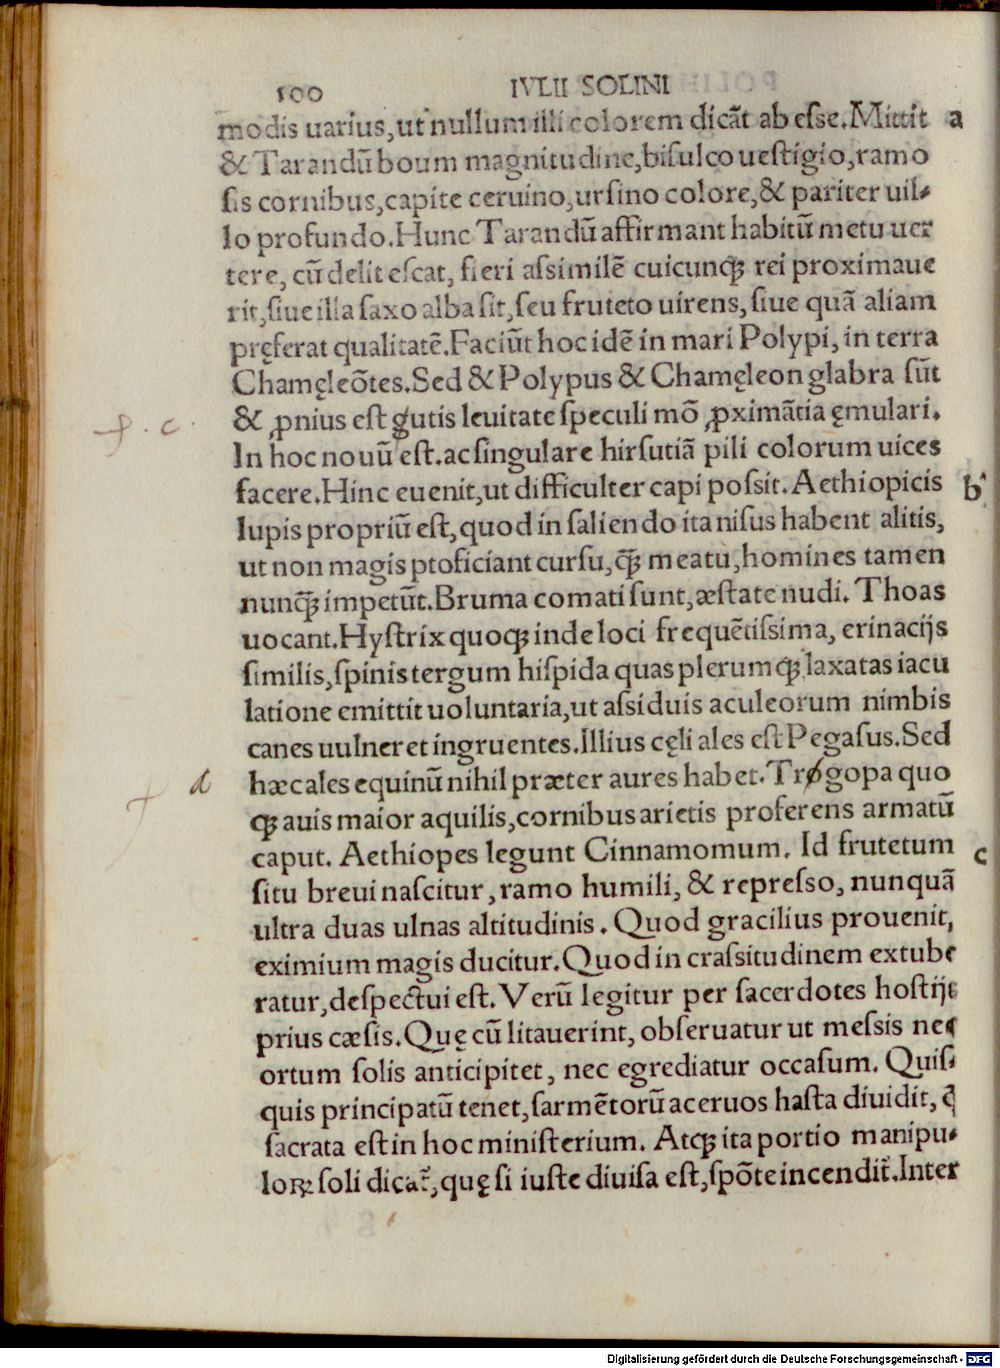 100 IVLII SOLINI
modis uarius, ut nullum illi colorem dicāt ab esse. Mittit a
& Tarandū boum magnitudine, bisulco uestigio, ramo
sis cornibus, capite ceruino, ursino colore, & pariter uil-
lo profundo. Hunc Tarandū affirmant habitū metu uer
tere, cū delitescat, fieri assimilē cuicunqꝫ rei proximaue
rit, siue illa saxo alba sit, seu fruteto uirens, siue quā aliam
pręferat qualitatē. Faciūt hoc idē in mari Polypi, in terra
Chamęleōtes. Sed & Polypus & Chamęleon glabra sūt
& ꝓnius est gutis leuitate speculi mō ꝓximātia ęmulari.
In hoc nouū est. ac singulare hirsutiā pili colorum uices
facere. Hinc euenit, ut difficulter capi possit. Aethiopicis b
lupis propriū est, quod in saliendo ita nisus habent alitis,
ut non magis ptoficiant cursu, qꝫ meatu, homines tamen
nunqꝫ impetūt. Bruma comati sunt, æstate nudi. Thoas
uocant. Hystrix quoqꝫ inde loci frequētissima, erinacijs
similis, spinis tergum hispida quas plerumqꝫ laxatas iacu
latione emittit uoluntaria, ut assiduis aculeorum nimbis
canes uulneret ingruentes. Illius cęli ales est Pegasus. Sed
d hæc ales equinū nihil præter aures habet. Trogopa quo
qꝫ auis maior aquilis, cornibus arietis proferens armatū
caput. Aethiopes legunt Cinnamomum. Id frutetum c
situ breui nascitur, ramo humili, & represso, nunquā
ultra duas ulnas altitudinis. Quod gracilius prouenit,
eximium magis ducitur. Quod in crassitudinem extube
ratur, despectui est. Verū legitur per sacerdotes hostijs
prius cæsis. Quę cū litauerint, obseruatur ut messis nec
ortum solis anticipitet, nec egrediatur occasum. Quis-
quis principatū tenet, sarmētorū aceruos hasta diuidit, q̄
sacrata est in hoc ministerium. Atqꝫ ita portio manipu-
loꝝ soli dicat᷑, quę si iuste diuisa est, spōte incendit᷑. Inter
Digitalisierung gefördert durch die Deutsche Forschungsgemeinschaft - DFG